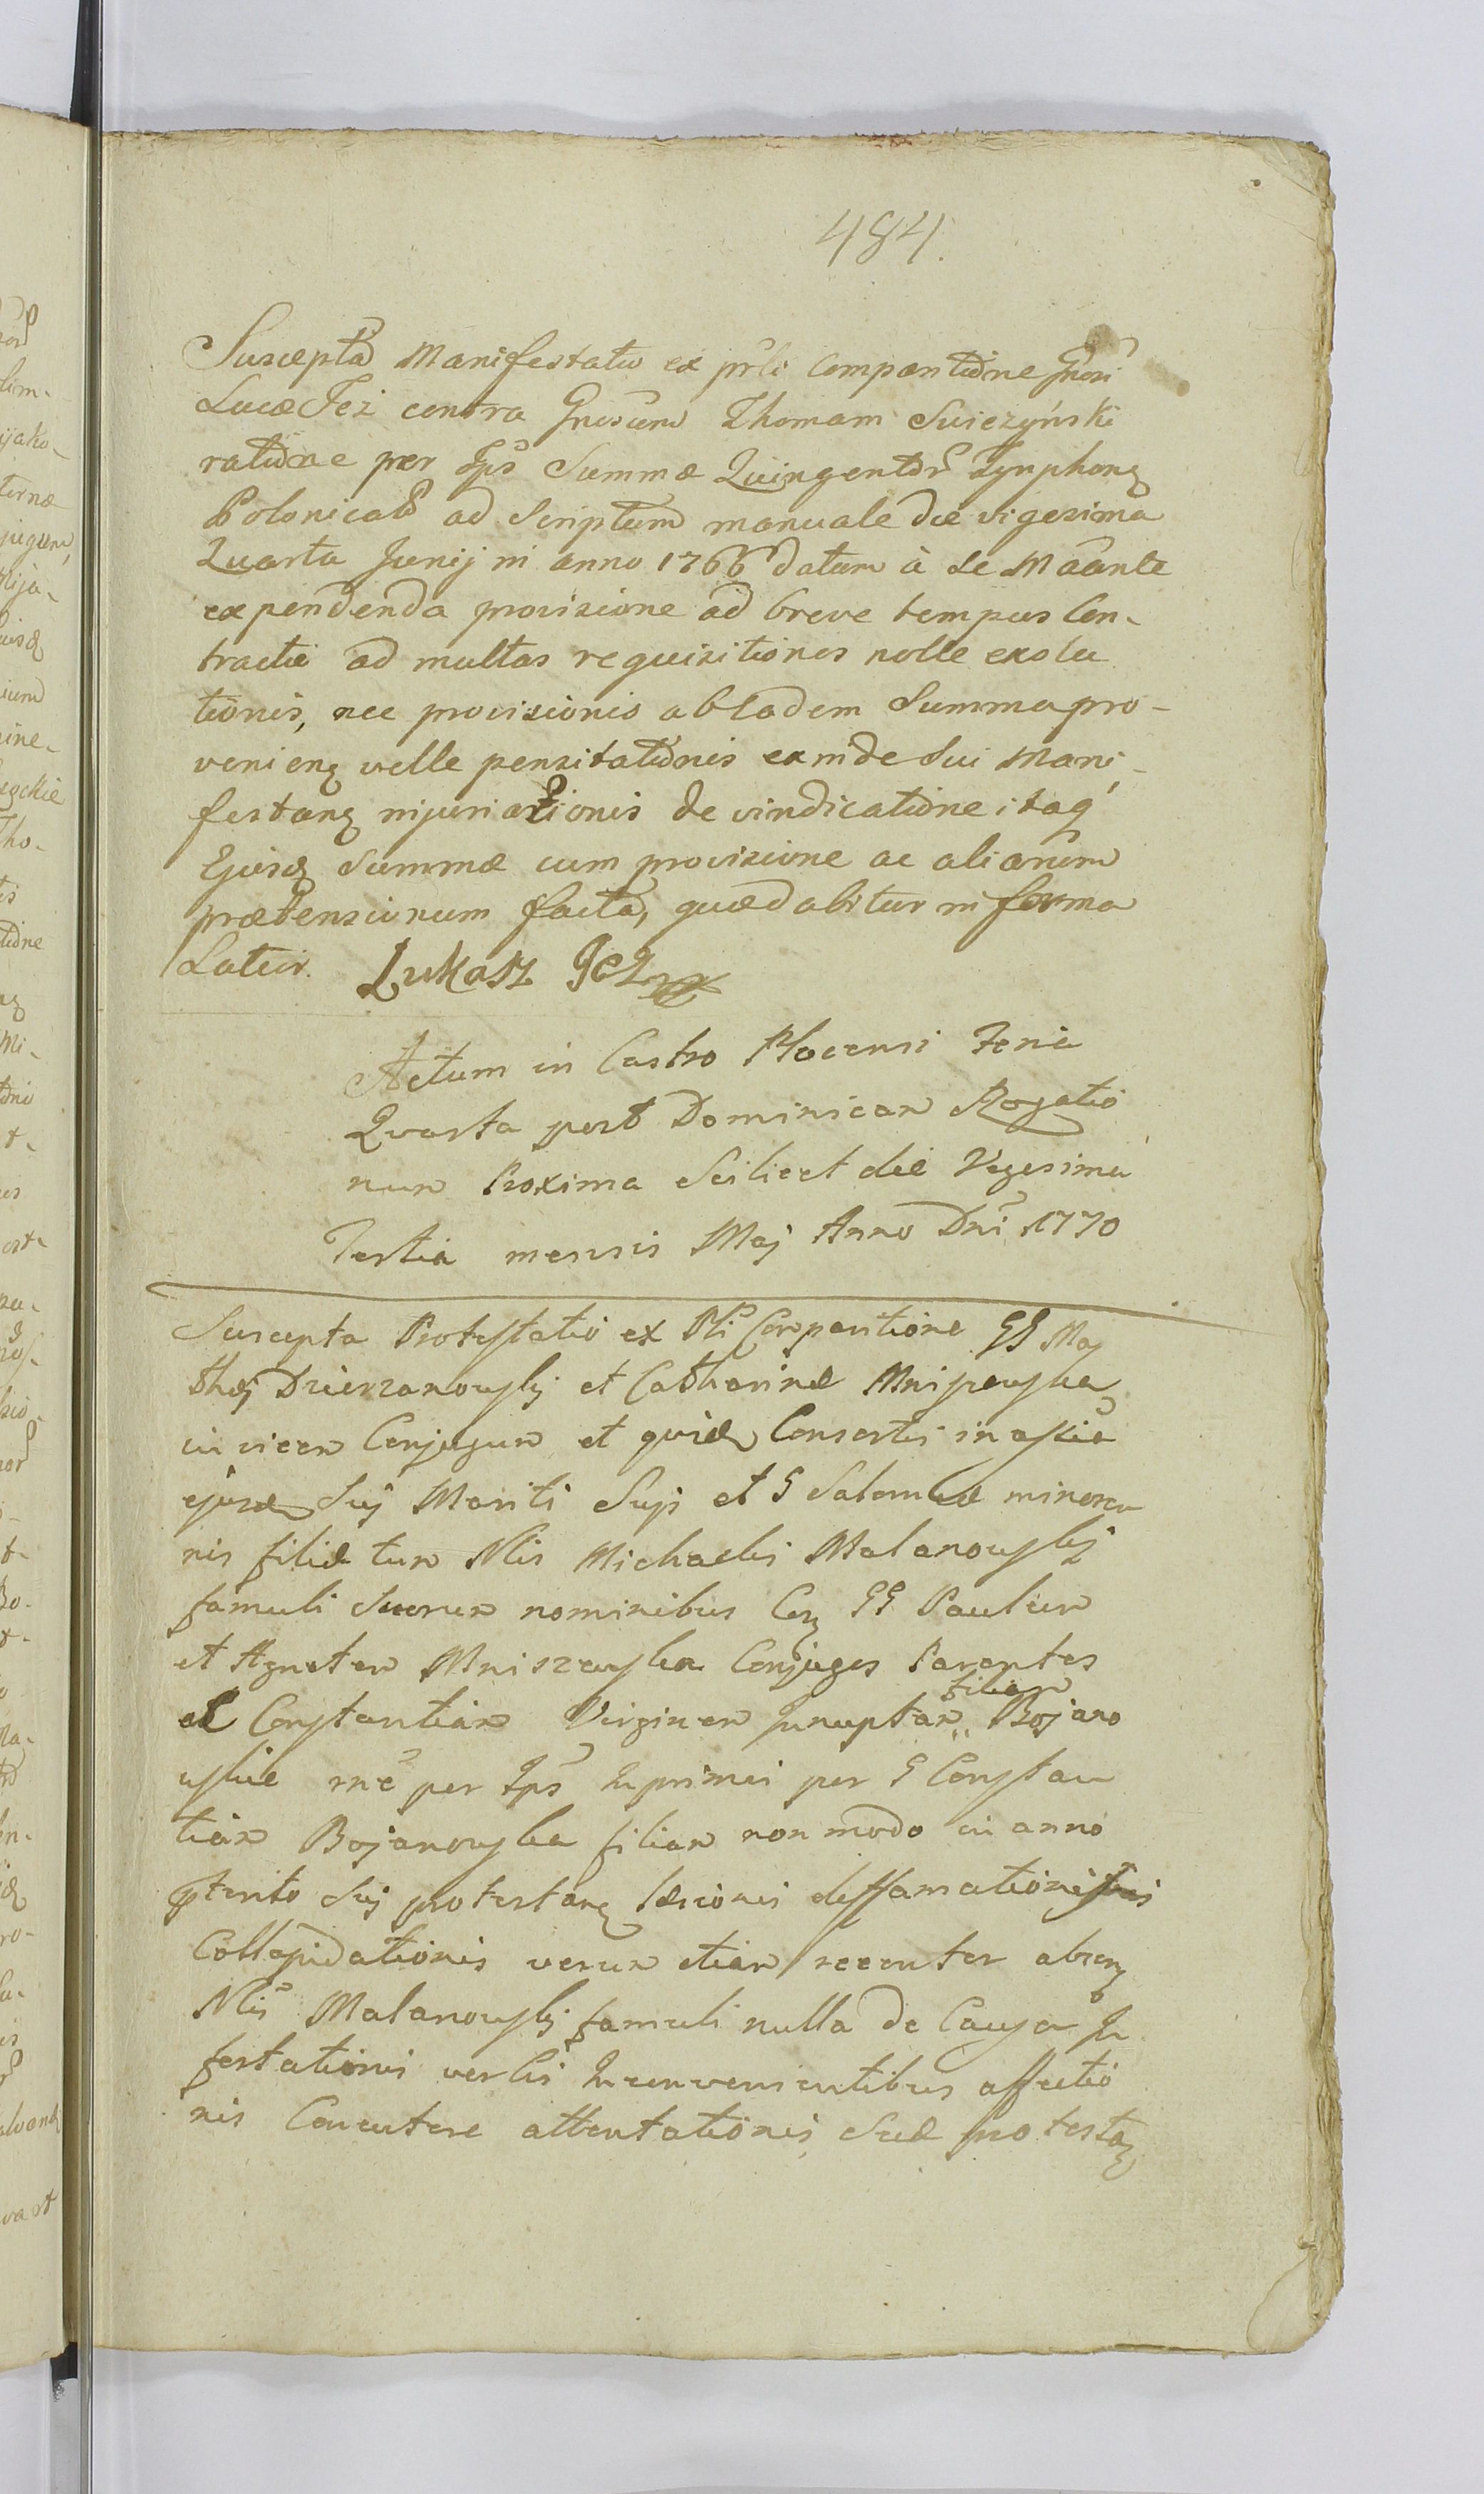 484.
Suscepta Manifestatio ex prli Comparitione Gnosi
Lucæ Jeż contra Gnosum Thomam Swiezyński
ratione per Ips Summæ Quingentor Tynphonq
Polonical ad Scriptum manuale die vigesima
Quarta Junij in anno 1766 datum à Se Maante
expendenda provisione ad breve tempus Con-
tractæ ad multas requisitiones nolle exolu
tionis, nec provisionis ab Eadem Summa pro-
venienq velle pensitationis exinde Sui Mani-
festanq injuriationis de vindicatione itaq
Ejusq Summæ cum provisione ac aliarum
prætensionum facta, quæ dabitur in forma
Latiori. Łukasz Jeż
Actum in Castro Plocensi Feria
Quarta post Dominican Rogatio
nun Proxima Scilicet die Vigesima
Tertia mensis Maj Anno Dni 1770
Suscepta Protestatio ex Pli Comparitione GG Mat
thej Dzierzanowskj et Catharinæ Mnisewska
in vicen Conjugun et quidem Consortis in assia
ejusd Suj Mariti Supi et G Salomeæ mineren
nis filiæ tun Nlis Michaelis Malanowskj
famuli Suorun nominibus Con GG Paulun
et Agneten Mniszewska Conjuges Parentes
et Constantian Virginen Innuptan filian Bojano
wskie rne per Ips Inprimis per G Constan
tian Bojanowska filian non modo in anno
pterito Suj protestanq læsionis deffamationis
Collapidationis verun etian recenter absenq
Nlis Malanowskj famuli nulla de Causa In
festationis verbis Inconvenientibus affectio
nis Concutere attentationis Suæ protestanq